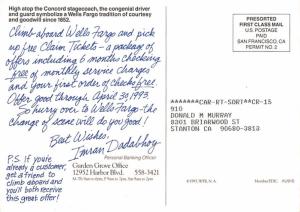 High atop the Concord stagecoach, the congenial driver
and guard symbolize a Wells Fargo tradition of courtesy
and goodwill since 1852.
Climb aboard Wells Fargo and pick
up free Claim Tickets - a package of
offers including 6 months checking
free of monthly service charges
and your first order of checks free.
Offer good through April 30, 1993.
So hurry over to Wells Fargo - the
change of scene will do you good!
Best Wishes,
Imran Dadabhoy
Personal Banking Officer
Garden Grove Office
12952 Harbor Blvd. 558-3421
P.S. If you're
already a customer,
get a friend to
climb aboard and
you'll both receive
this great offer!
PRESORTED
FIRST CLASS MAIL
U.S. POSTAGE
PAID
SAN FRANCISCO, CA
PERMIT NO. 2
*******CAR-RT-SORT**CR-15
910
DONALD M MURRAY
8201 BRIARWOOD ST
STANTON CA 90680-3813
©1993, WFB, N.A.
Member FDIC